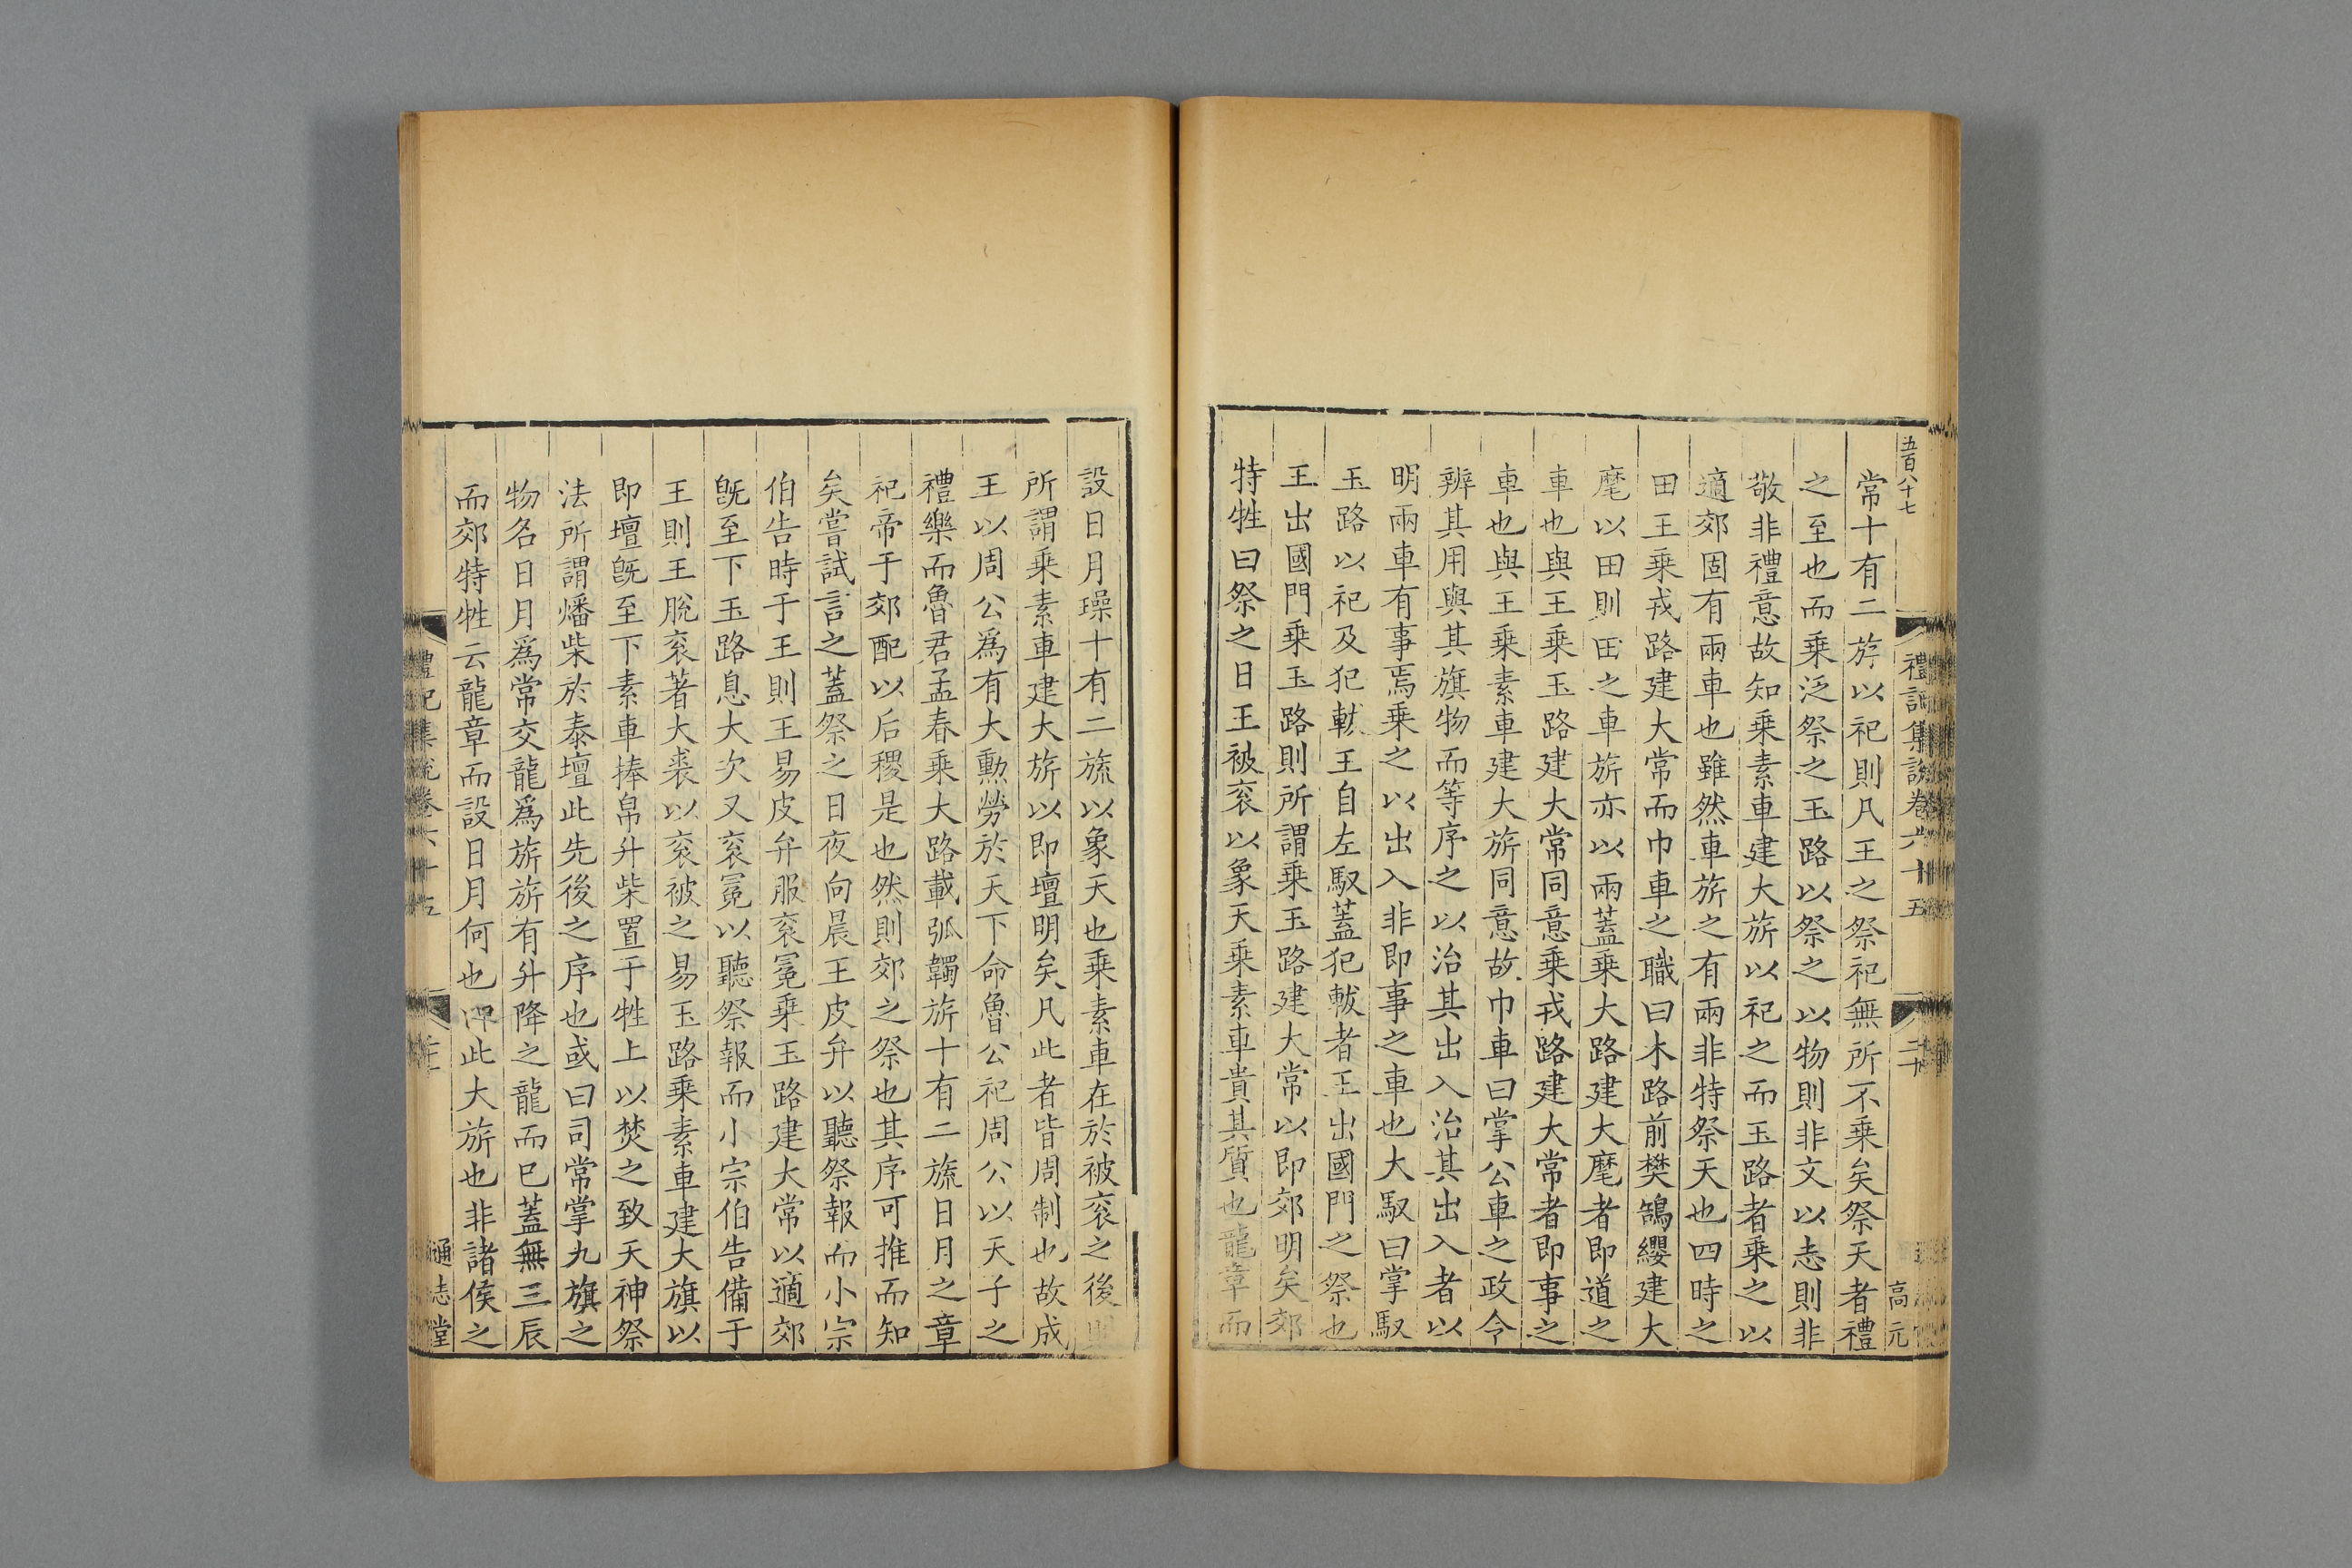 五百八十七
禮記集說卷六十五
二十
高元
常十有二斿以祀則凡王之祭祀無所不乗矣祭天者禮
之至也而乗泛祭之玉路以祭之以物則非文以志則非
敬非禮意故知乗素車建大旂以祀之而玉路者乗之以
適郊固有兩車也雖然車旂之有兩非特祭天也四時之
田王乗戎路建大常而巾車之職曰木路前樊鵠纓建大
麾以田則田之車旂亦以兩蓋乗大路建大麾者即道之
車也與王乗玉路建大常同意乗戎路建大常者即事之
車也與王乗素車建大旂同意故巾車曰掌公車之政令
辨其用與其旗物而等序之以治其出入治其出入者以
明兩車有事焉乗之以出入非即事之車也大馭曰掌馭
玉路以祀及犯軷王自左馭蓋犯軷者王出國門之祭也
王出國門乗玉路則所謂乗玉路建大常以即郊明矣郊
特牲曰祭之日王被衮以象天乗素車貴其質也龍章而
設日月璪十有二旒以象天也乗素車在於被衮之後
所謂乗素車建大旂以即壇明矣凡此者皆周制也故成
王以周公爲有大勲勞於天下命魯公祀周公以天子之
禮樂而魯君孟春乗大路載弧韣旂十有二旒日月之章
祀帝于郊配以后稷是也然則郊之祭也其序可推而知
矣嘗試言之蓋祭之日夜向晨王皮弁以聽祭報而小宗
伯告時于王則王易皮弁服衮冕乗玉路建大常以適郊
旣至下玉路息大次又衮冕以聽祭報而小宗伯告備于
王則王脫衮著大裘以衮被之易玉路乗素車建大旗以
即壇旣至下素車捧帛升柴置于牲上以焚之致天神祭
法所謂燔柴於泰壇此先後之序也或曰司常掌九旗之
物名日月爲常交龍爲旂旂有升降之龍而已蓋無三辰
而郊特牲云龍章而設日月何也卽此大旂也非諸侯之
禮記集說卷六十五
通志堂